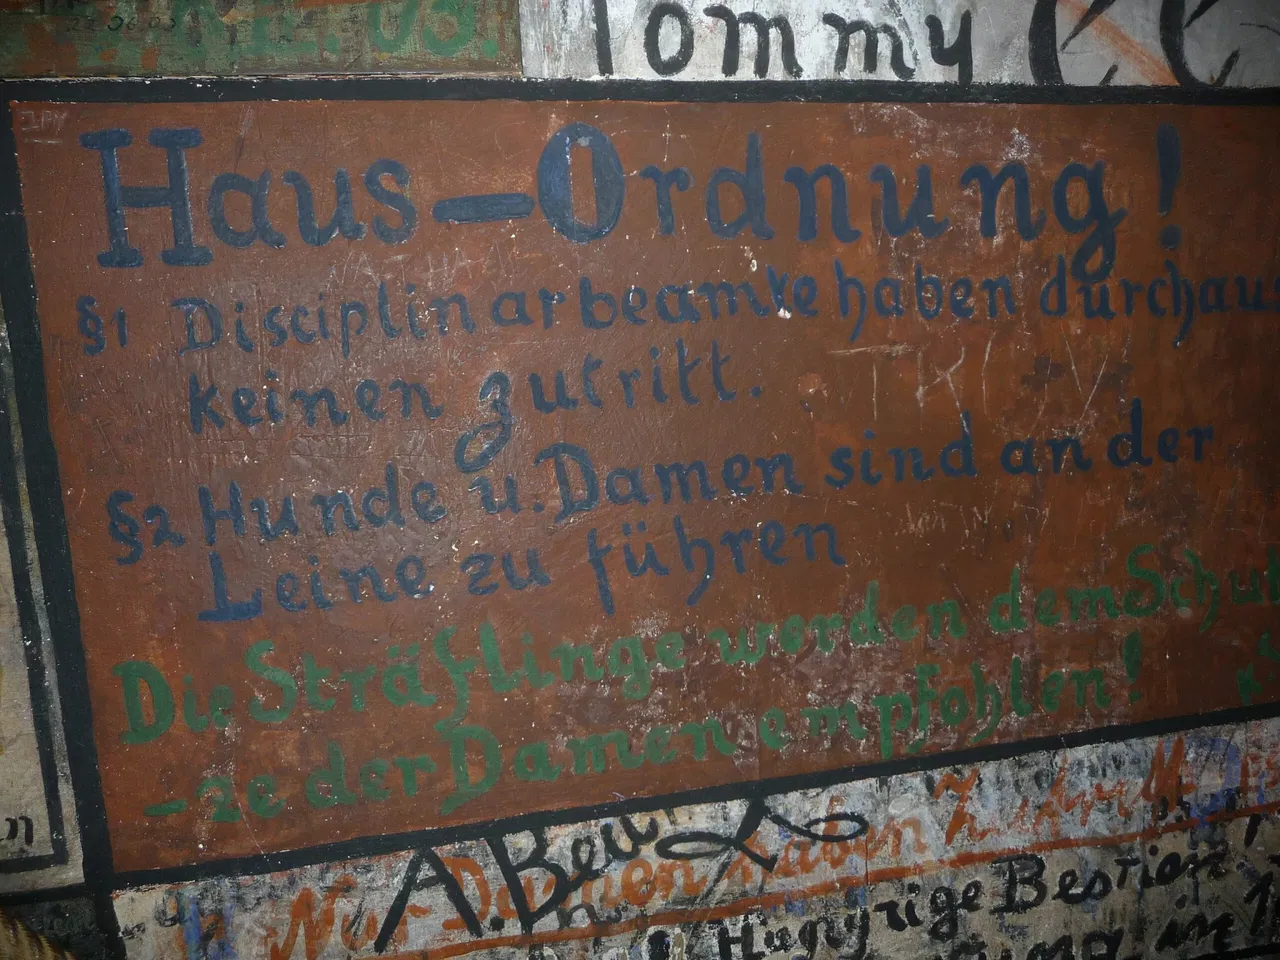 22.06.03
03.
Tommy
JPM
Haus-Ordnung!
§1 Disciplinarbeamte haben durchaus
keinen zutritt.
§2 Hunde u. Damen sind an der
Leine zu führen
Die Sträflinge werden dem Schut
-ze der Damen empfohlen!
A. Beu
Nur Damen haben Zutritt
Hungrige Bestien